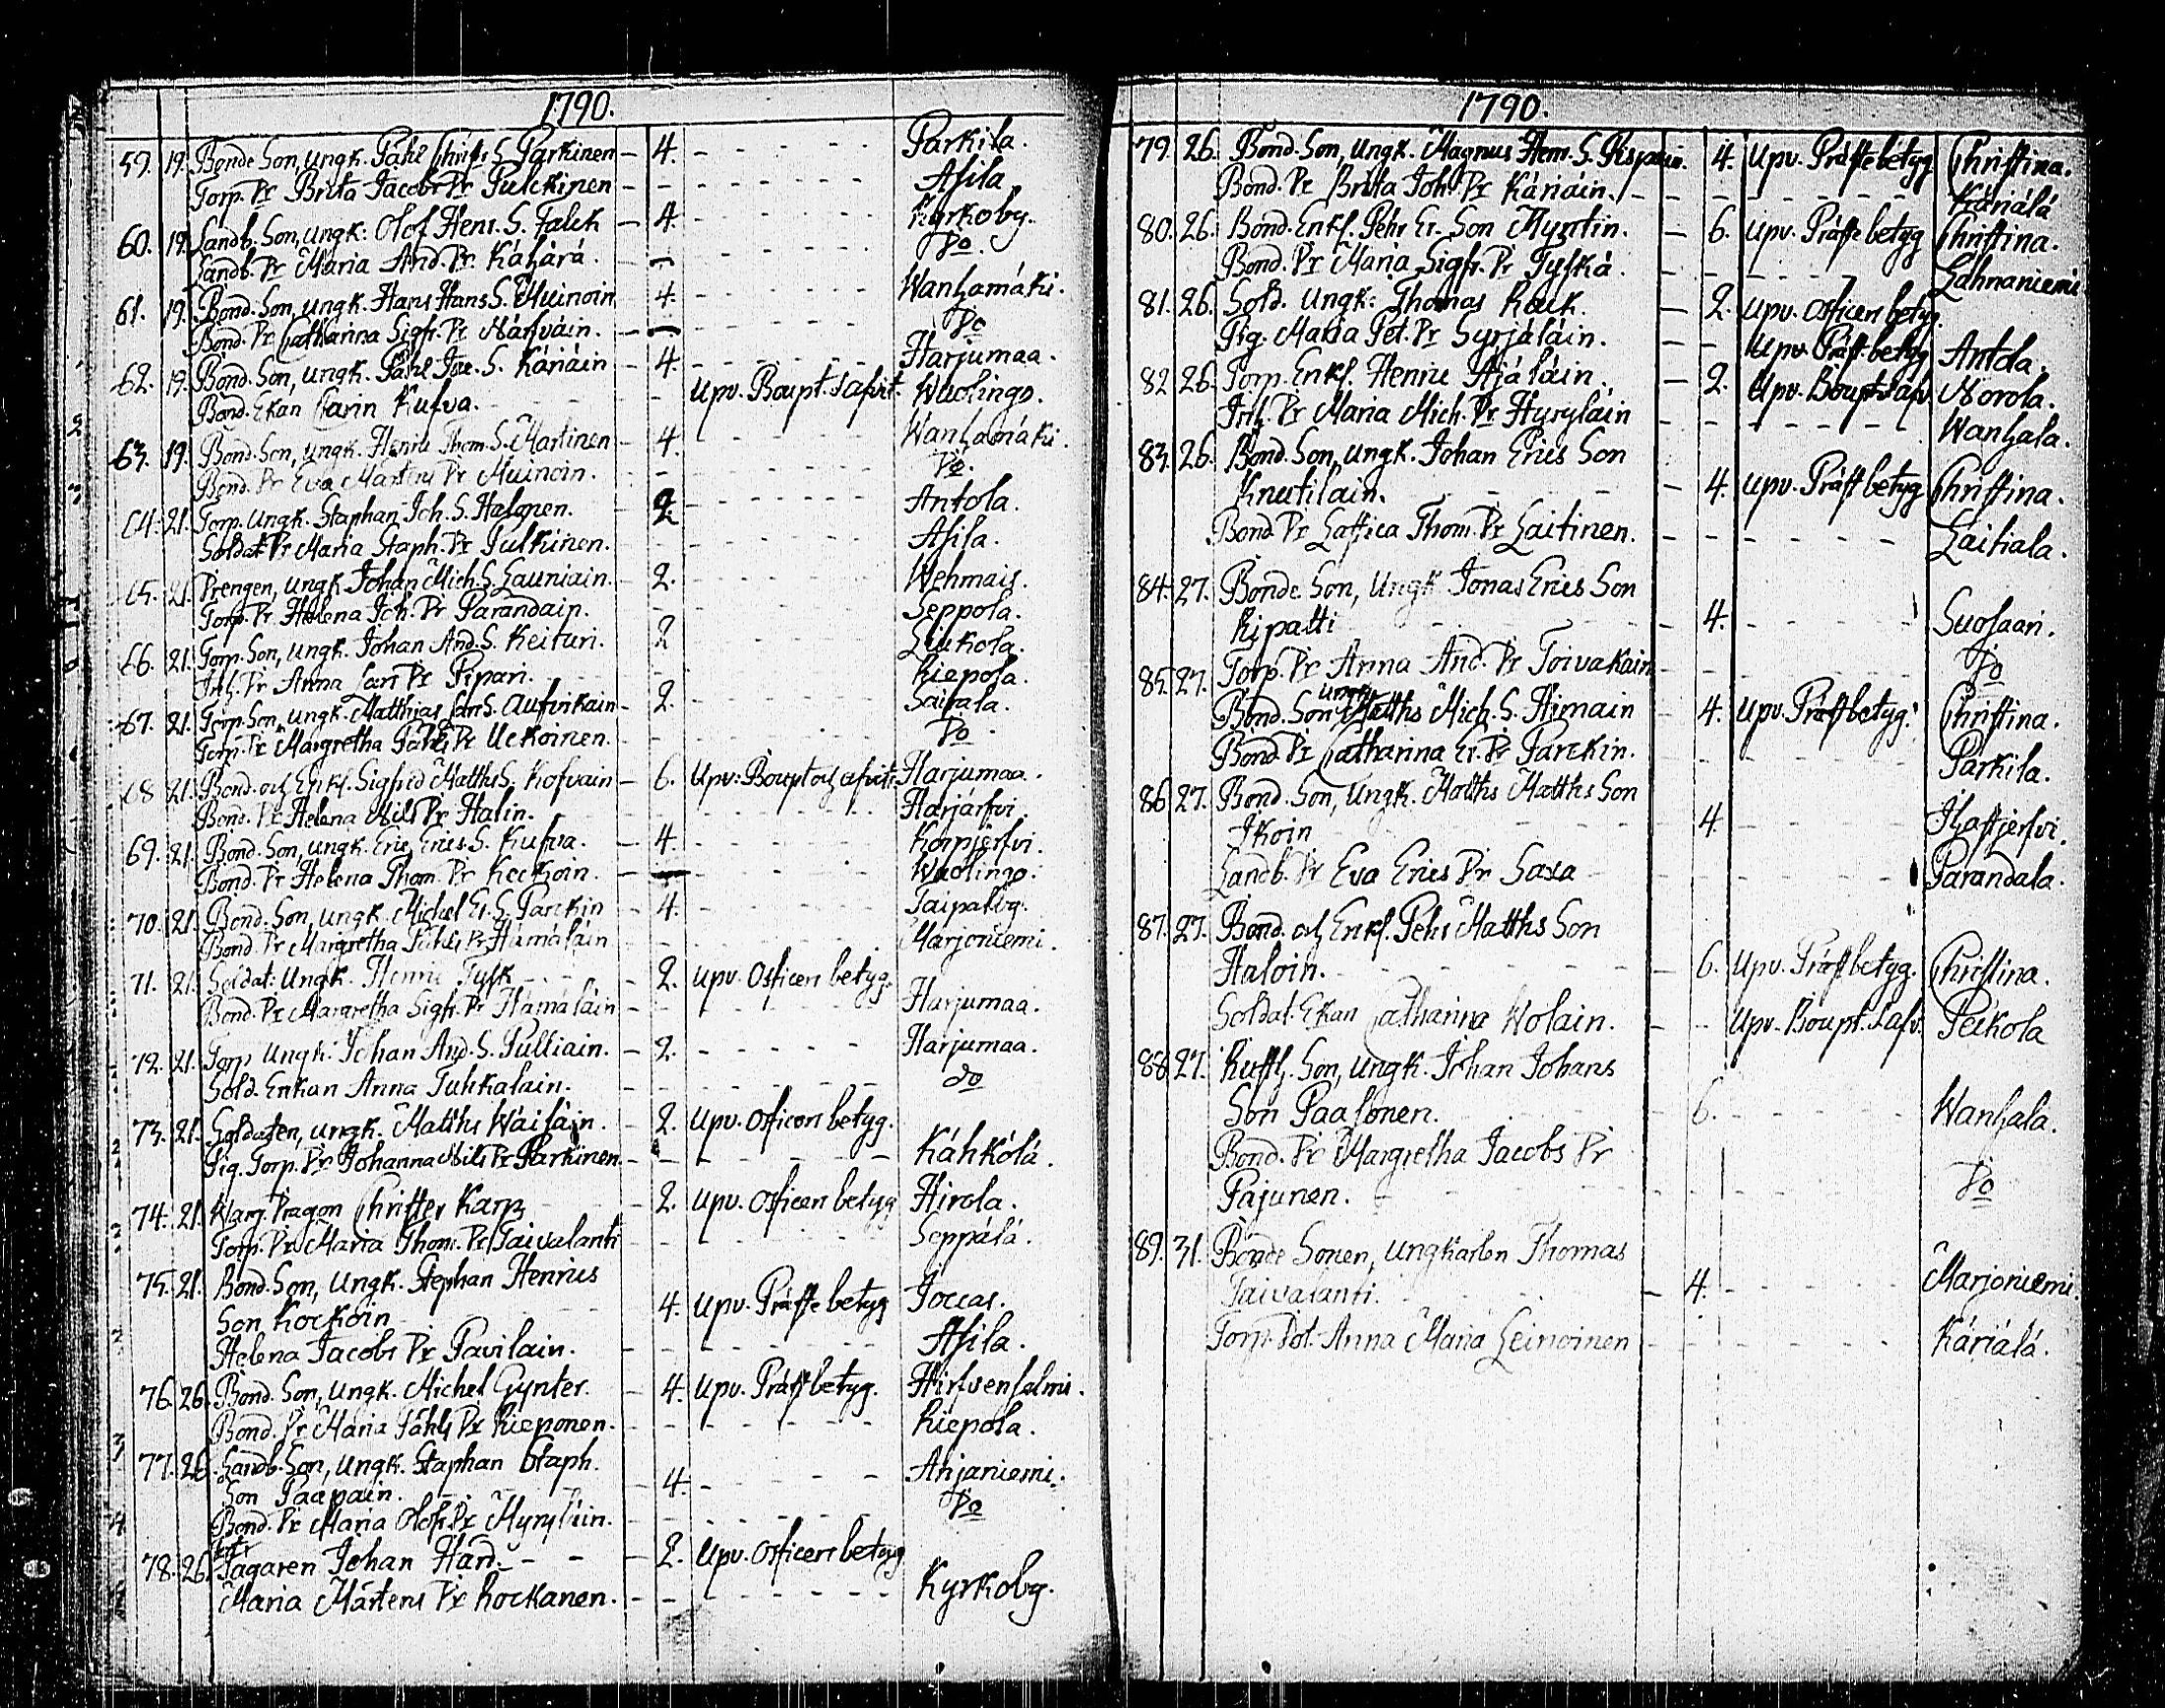 1790.
59. 19. Bonde Son, Ungk. Påhl Christ. S. Parkinen - 4. - - - - - Parkila.
Torp. Dr Brita Jacobs Dr Pulckinen - - - - - - - Asila.
60. 19. Landb. Son, Ungk: Olof Henr. S. Falck - 4. - - - - - Kyrkoby.
Landb. Dr Maria And. Dr. Kähärä. - - - - - - Do.
61. 19. Bond. Son, Ungk. Hans Hans S. Muinoin 4. - - - - - Wanhamäki.
Bond. Dr Catharina Sigfr. Dr Närfväin. - - - - - - Do
62. 19. Bond. Son, Ungk. Påhl S. Käriäin - 4. - - - - - Harjumaa.
Bond. Ekan Carin Kufva. - - - - Upv. Boupt. Wuolingo.
63. 19. Bond. Son, Ungk. Henric Thom. S. Martinen - 4. - - - - - Wanhamäki.
Bond. Dr Eva Mårtens Dr Muinoin. - - - - - - Do.
64. 21. Torp. Ungk. Staphan Joh. S. Halonen. - 2 - - - - - Antola.
Soldat. Dr Maria Staph. Dr Pulkinen. - - - - - - Asila.
65. 21. Drengen, Ungk. Johan Mich. S. Launiain. - 2. - - - - - Wehmais.
Torp. Dr Helena Joh. Dr Parandain. - - - - - - Seppola.
66. 21. Torp. Son, Ungk. Johan And. S. Keituri. 2 - - - - - Liukola.
Inh. Dr Anna Dr Pipari. - - - - - - Kiepola.
67. 21. Torp. Son, Ungk. Matthias S. - 2. - - - - - Saihala.
Torp. Dr Margretha Påhls Dr Uckoinen. - - - - - - Do.
68 21. Bond. och Enkl. Sigfrid Matths S. Kofvain - 6. Upv: Boupt och Harjumaa.
Bond. Dr Helena Nils Dr Halin. - - - - - - Harjärfvi.
69. 21. Bond. Son, Ungk. Eric Erics. S. Kufva. - 4. - - - - - Korpijerfvi.
Bond. Dr Helena Thom. Dr Kockoin. - - - - - - Wuolingo.
70. 21. Bond. Son, Ungk. Michel Er. S. Parckin - 4. - - - - -
Bond. Dr Margretha Påhls Dr Hämäläin - - - - - - Marjoniemi.
71. 21. Soldat: Ungk. Henric Tysk - - - 2. Upv. Officers betyg.
Bond. Dr Margretha Sigfr. Dr Hämäläin - - - - - - Harjumaa.
72. 21. Torp Ungk. Johan And. S. Pulliain. - 2. - - - - - Harjumaa.
Sold. Enkan Anna Tuhkalain. - - - - - - do
73. 21. Soldaten, Ungk. Matths Wäiläin. - 2. Upv. Officers betyg.
Pig. Torp. Dr Johanna Nils Dr Parkinen. - - - - - - Kähkölä.
74. 21. Warg. Dragon Christer Karp - - 2. Upv. Officers betyg Hirola.
Torp. Dr Maria Thom. Dr Taivalanti - - - - - - Seppälä.
75. 21. Bond. Son, Ungk. Stephan Henrics
Son Kockoin - - - 4. Upv. Präste betyg Joccas.
Helena Jacobs Dr Pavilain. - - - - - - Asila.
76. 26. Bond. Son, Ungk. Michel Gynter. - 4. Upv. Präst betyg. Hirfvensalmi.
Bond. Dr Maria Påhls Dr Kieponen. - - - - - - Kiepola.
77. 26. Landb. Son, Ungk. Staphan Staph.
Son Paapain. - - - 4. - - - - - Ahjaniemi.
Bond. Dr Maria Olofs Dr Hyryläin. - - - - - - Do
78. 26. Jagaren Johan Hård. - - - 2. Upv. Officers betyg
Maria Mårtens Dr Kockanen. - - - - - - Kyrkoby.
1790.
79. 26. Bond. Son, Ungk. Magnus Hem. S. - 4. Upv. Präste betyg Christina.
Bond. Dr Brita Joh. Dr Käriäin. - - - - - - Käriälä
80. 26. Bond. Enkl. Pehr Er. Son Myntin. - 6. Upv. Präste betyg Christina.
Bond. Dr Maria Sigfr. Dr Tyskä. - - - - - - Lahnaniemi
81. 26. Sold. Ungk: Thomas Kock. - 2. Upv. Officers betyg.
Pig. Maria Pet. Dr Syrjäläin. - - Upv. Präst. betyg Antola.
82 26. Torp. Enkl. Henric Äijäläin. - 2. Upv. Boupt. Norola.
Inh. Dr Maria Mich. Dr Hyryläin - - - - - - Wanhala.
83. 26. Bond. Son, Ungk. Johan Erics Son
Knutilain. - - - 4. Upv. Präst betyg Christina.
Bond. Dr Thom. Dr Laitinen. - - - - - - Laitiala.
84. 27. Bonde Son, Ungk Jonas Erics Son
Ripatti - - - 4. - - - - - Suolaari.
Torp. Dr Anna And. Dr Toivakain - - - - - - Do
85. 27. Bond. Son Ungk Matths Mich. S. Himain - 4. Upv. Präst betyg. Christina.
Bond. Dr Catharina Er. Dr Parckin. - - - - - - Parkila.
86 27. Bond. Son, Ungk. Matths Matths Son
Ikoin - - - 4. - - - - -
Landb. Dr Eva Erics Dr Saxa - - - - - - Parandala.
87. 27. Bond. och Enkl. Pehr Matths Son
Haloin. - - - 6. Upv. Präst betyg. Christina.
Soldat. Ekan Catharina Wolain. - - Upv. Boupt. Peikola
88 27. Son, Ungk. Johan Johans
Son Paasonen. - - - 6. - - - - - Wanhala.
Bond. Dr Margretha Jacobs Dr
Pajunen. - - - - - - Do
89. 31. Bonde Sonen, Ungkarlen Thomas
Taivalanti. - - - 4. - - - - - Marjoniemi.
Torp. Dot. Anna Maria Leinoinen - - - - - - Käriälä.